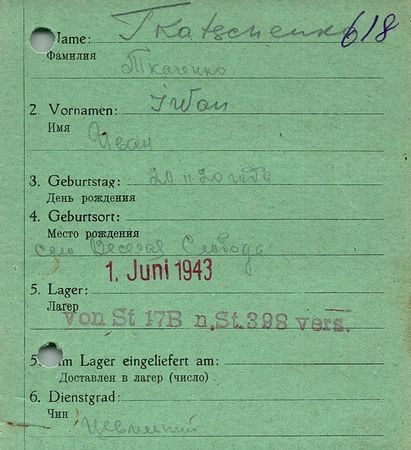 Name: Tkatschenko 618
Фамилия
Ткаченко
2. Vornamen: Iwan
Имя
Иван
3. Geburtstag: 20 11 20 года
День рождения
4. Geburtsort:
Место рождения
село Веселая Слобода
1. Juni 1943
5. Lager:
Лагер
von St 17B n. St. 398 vers.
5. Im Lager eingeliefert am:
Доставлен в лагер (число)
6. Dienstgrad:
Чин